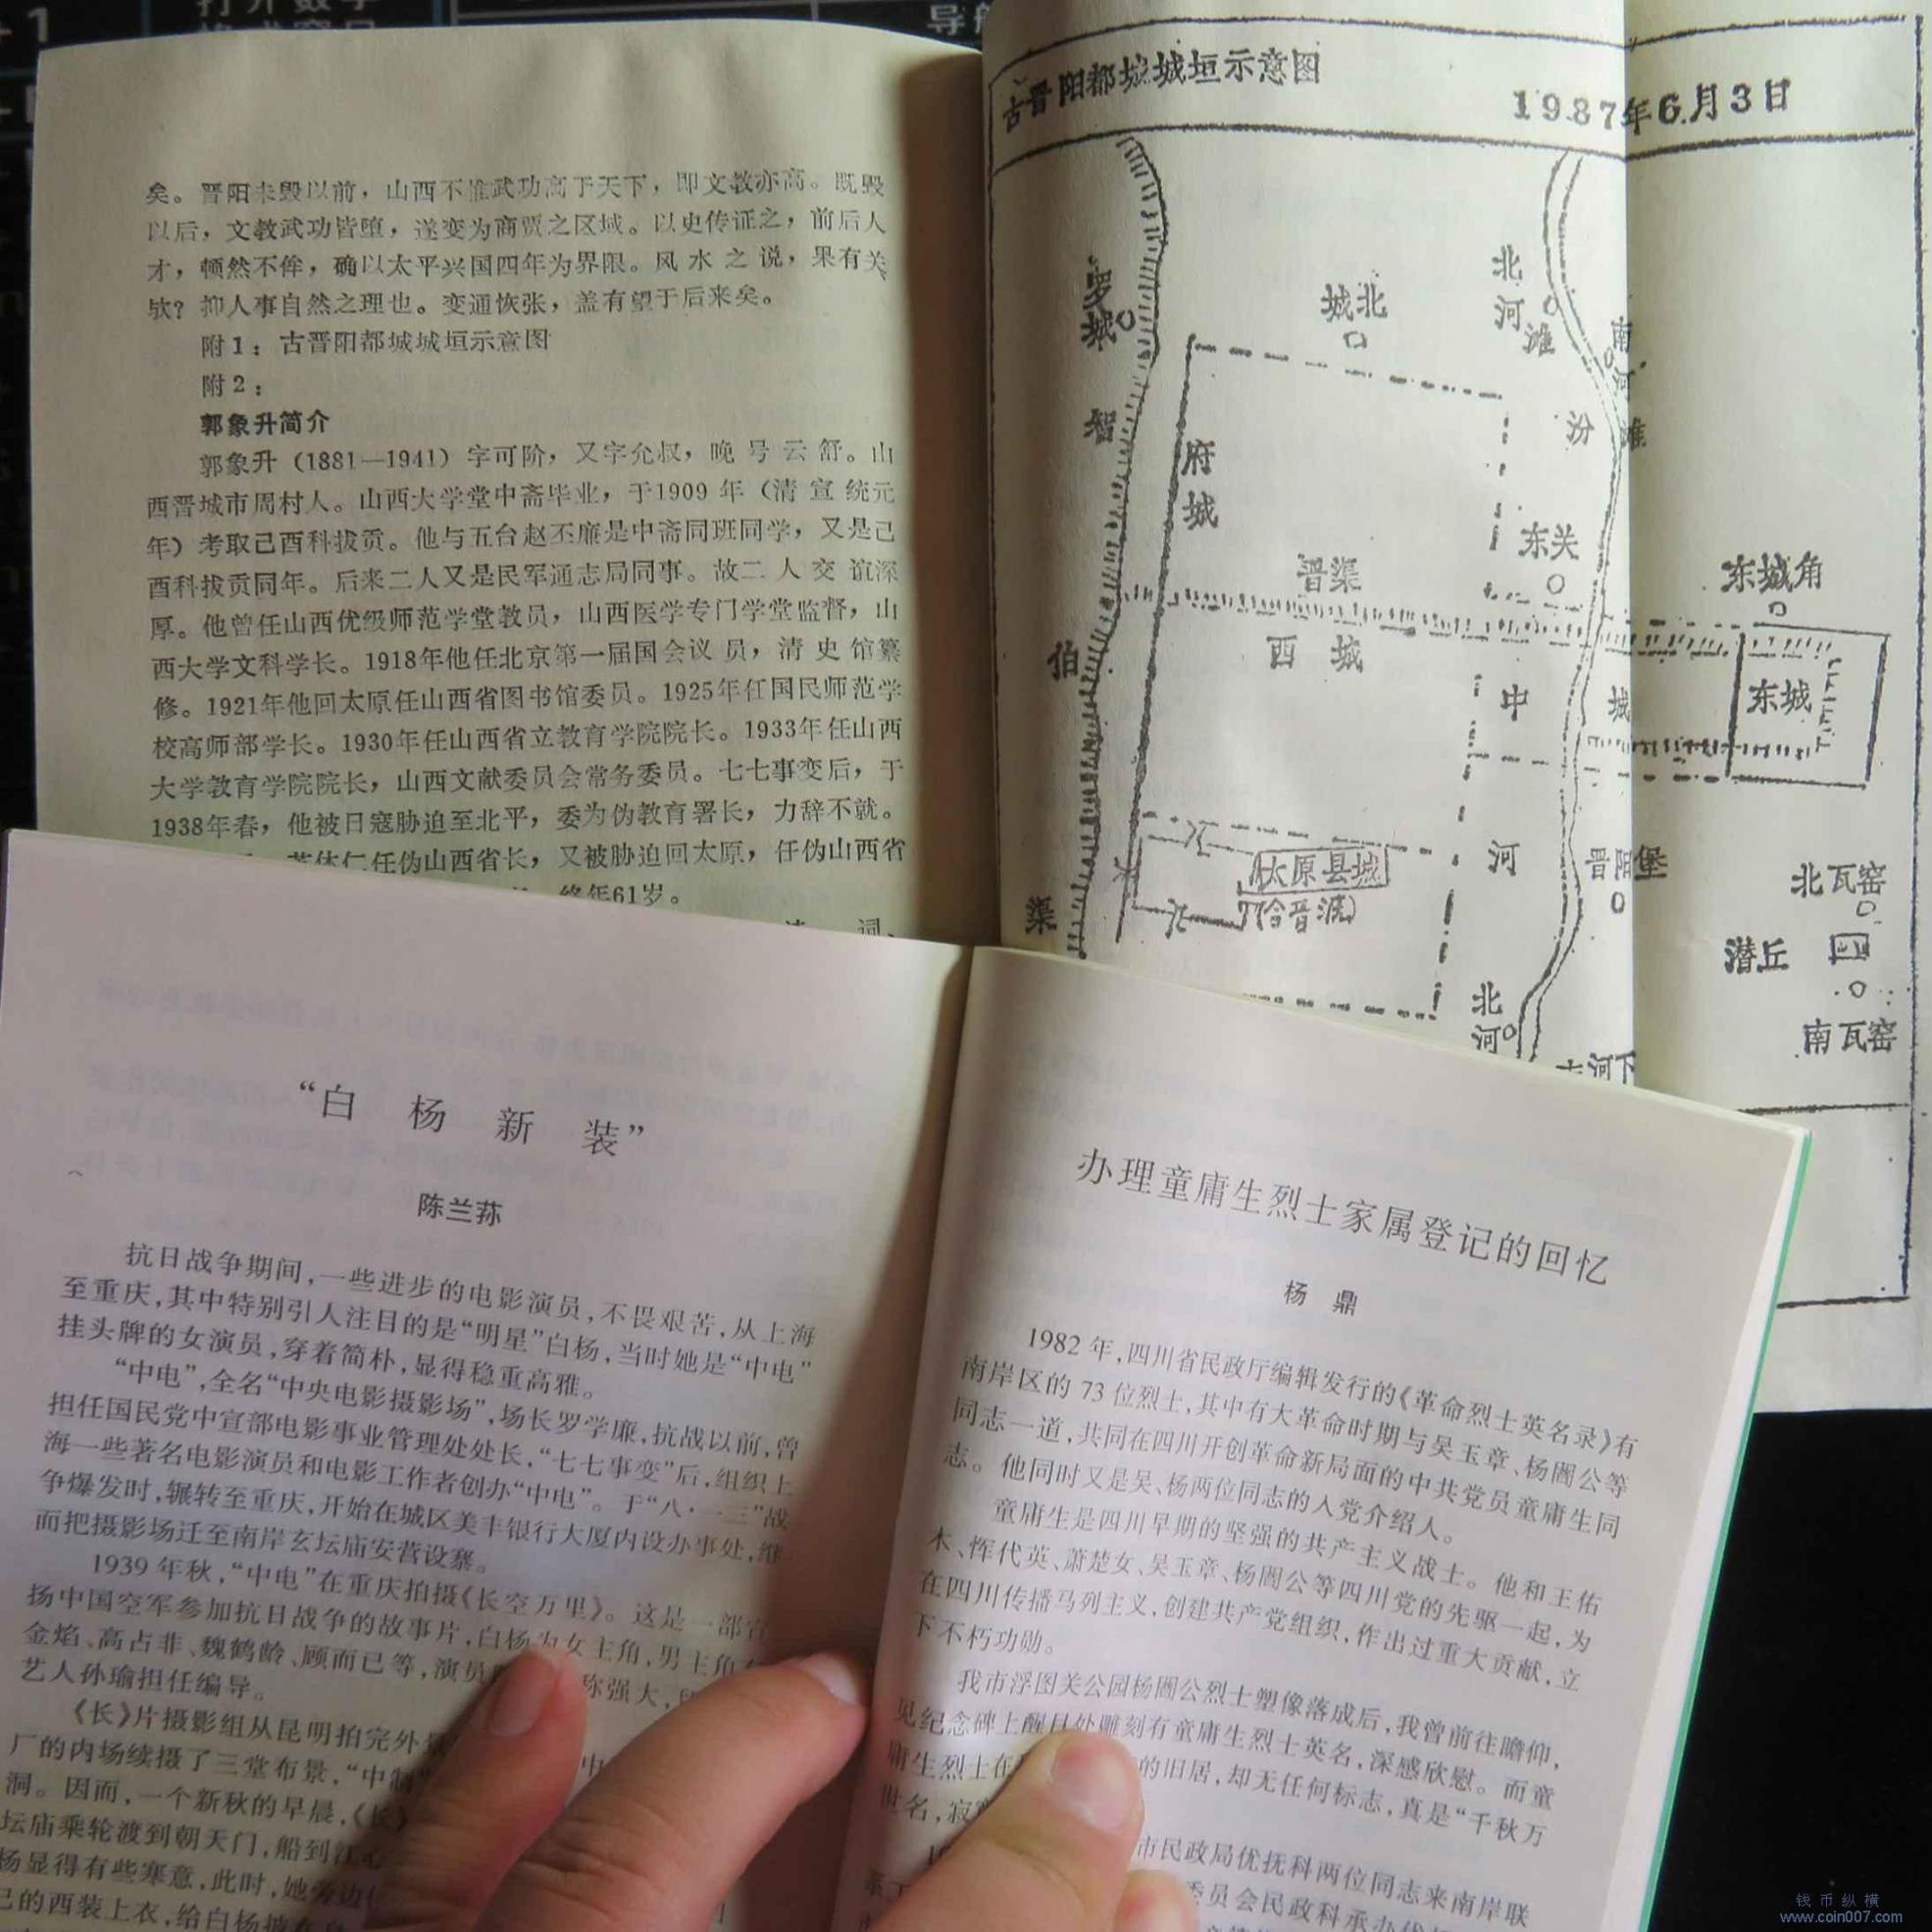 +1
打开数字
导航
矣。晋阳未毁以前，山西不惟武功高于天下，即文教亦高。既毁
以后，文教武功皆堕，遂变为商贾之区域。以史传证之，前后人
才，顿然不侔，确以太平兴国四年为界限。风水之说，果有关
欤？抑人事自然之理也。变通恢张，盖有望于后来矣。
附1：古晋阳都城城垣示意图
附2：
郭象升简介
郭象升（1881—1941）字可阶，又字允叔，晚号云舒。山
西晋城市周村人。山西大学堂中斋毕业，于1909年（清宣统元
年）考取己酉科拔贡。他与五台赵丕廉是中斋同班同学，又是己
酉科拔贡同年。后来二人又是民军通志局同事。故二人交谊深
厚。他曾任山西优级师范学堂教员，山西医学专门学堂监督，山
西大学文科学长。1918年他任北京第一届国会议员，清史馆纂
修。1921年他回太原任山西省图书馆委员。1925年任国民师范学
校高师部学长。1930年任山西省立教育学院院长。1933年任山西
大学教育学院院长，山西文献委员会常务委员。七七事变后，于
1938年春，他被日寇胁迫至北平，委为伪教育署长，力辞不就。
苏体仁任伪山西省长，又被胁迫回太原，任伪山西省
终年61岁。
词、
古晋阳都城城垣示意图
1987年6月3日
罗城
城北
北河滩
南河滩
智
府城
汾
东关
晋渠
东城角
伯
西城
中城
东城
太原县城
(今晋源)
河
晋阳堡
北瓦窑
渠
潜丘
北河
南瓦窑
河下
“白杨新装”
陈兰荪
抗日战争期间，一些进步的电影演员，不畏艰苦，从上海
至重庆，其中特别引人注目的是“明星”白杨，当时她是“中电”
挂头牌的女演员，穿着简朴，显得稳重高雅。
“中电”，全名“中央电影摄影场”，场长罗学廉，抗战以前，曾
担任国民党中宣部电影事业管理处处长，“七七事变”后，组织上
海一些著名电影演员和电影工作者创办“中电”。于“八·一三”战
争爆发时，辗转至重庆，开始在城区美丰银行大厦内设办事处，继
而把摄影场迁至南岸玄坛庙安营设寨。
1939年秋，“中电”在重庆拍摄《长空万里》。这是一部宣
扬中国空军参加抗日战争的故事片，白杨为女主角，男主角
金焰、高占非、魏鹤龄、顾而已等，演员 称强大，
艺人孙瑜担任编导。
《长》片摄影组从昆明拍完外景
厂的内场续摄了三堂布景，“中制”
洞。因而，一个新秋的早晨，《长》
坛庙乘轮渡到朝天门，船到江心
杨显得有些寒意，此时，她旁边
己的西装上衣，给白杨披
办理童庸生烈士家属登记的回忆
杨鼎
1982年，四川省民政厅编辑发行的《革命烈士英名录》有
南岸区的73位烈士，其中有大革命时期与吴玉章、杨闇公等
同志一道，共同在四川开创革命新局面的中共党员童庸生同
志。他同时又是吴、杨两位同志的入党介绍人。
童庸生是四川早期的坚强的共产主义战士。他和王佑
木、恽代英、萧楚女、吴玉章、杨闇公等四川党的先驱一起，为
在四川传播马列主义，创建共产党组织，作出过重大贡献，立
下不朽功勋。
我市浮图关公园杨闇公烈士塑像落成后，我曾前往瞻仰，
见纪念碑上醒目处雕刻有童庸生烈士英名，深感欣慰。而童
庸生烈士在 的旧居，却无任何标志，真是“千秋万
世名，寂寞
市民政局优抚科两位同志来南岸联
委员会民政科承办
钱币纵横
www.coin007.com